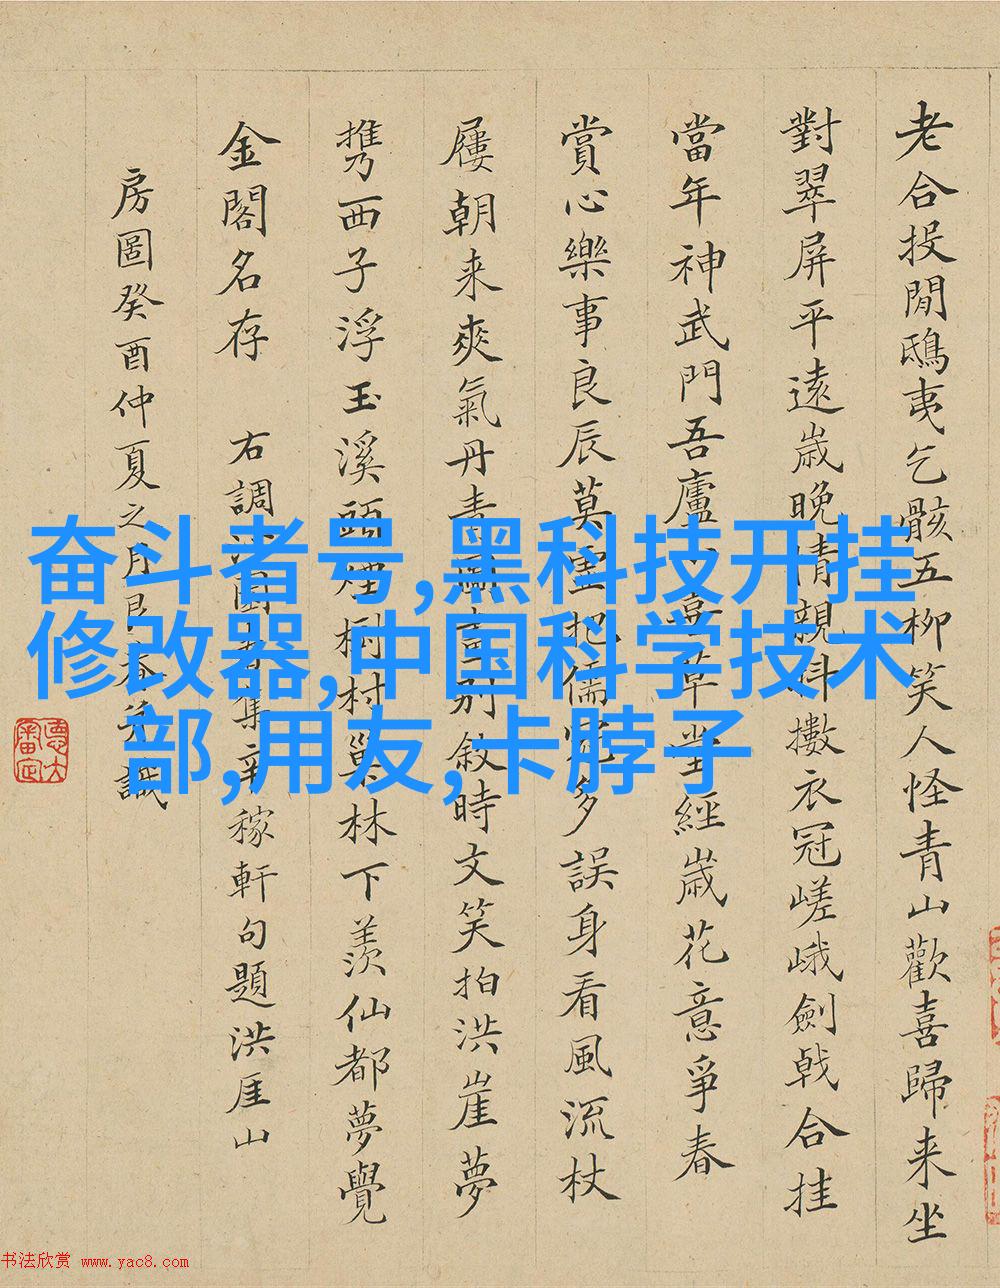 老合投閒鴟夷乞骸五柳笑人怪青山歡喜歸来坐
對翠屏平遠歲晚情親抖擻衣冠嵯峨劍戟合挂
當年神武門吾廬喜草堂經歲花意爭春
賞心樂事良辰莫把儒冠多誤身看風流杖
屨朝来爽氣丹青别敘時文笑拍洪崖夢
携西子浮玉溪頭煙樹村巢林下羡仙都夢覺
金閣名存 右調沁園春集辛稼軒句題洪厓山
房圖癸酉仲夏之月識
奋斗者号,黑科技开挂
修改器,中国科学技术
部,用友,卡脖子
书法欣赏 www.yac8.com